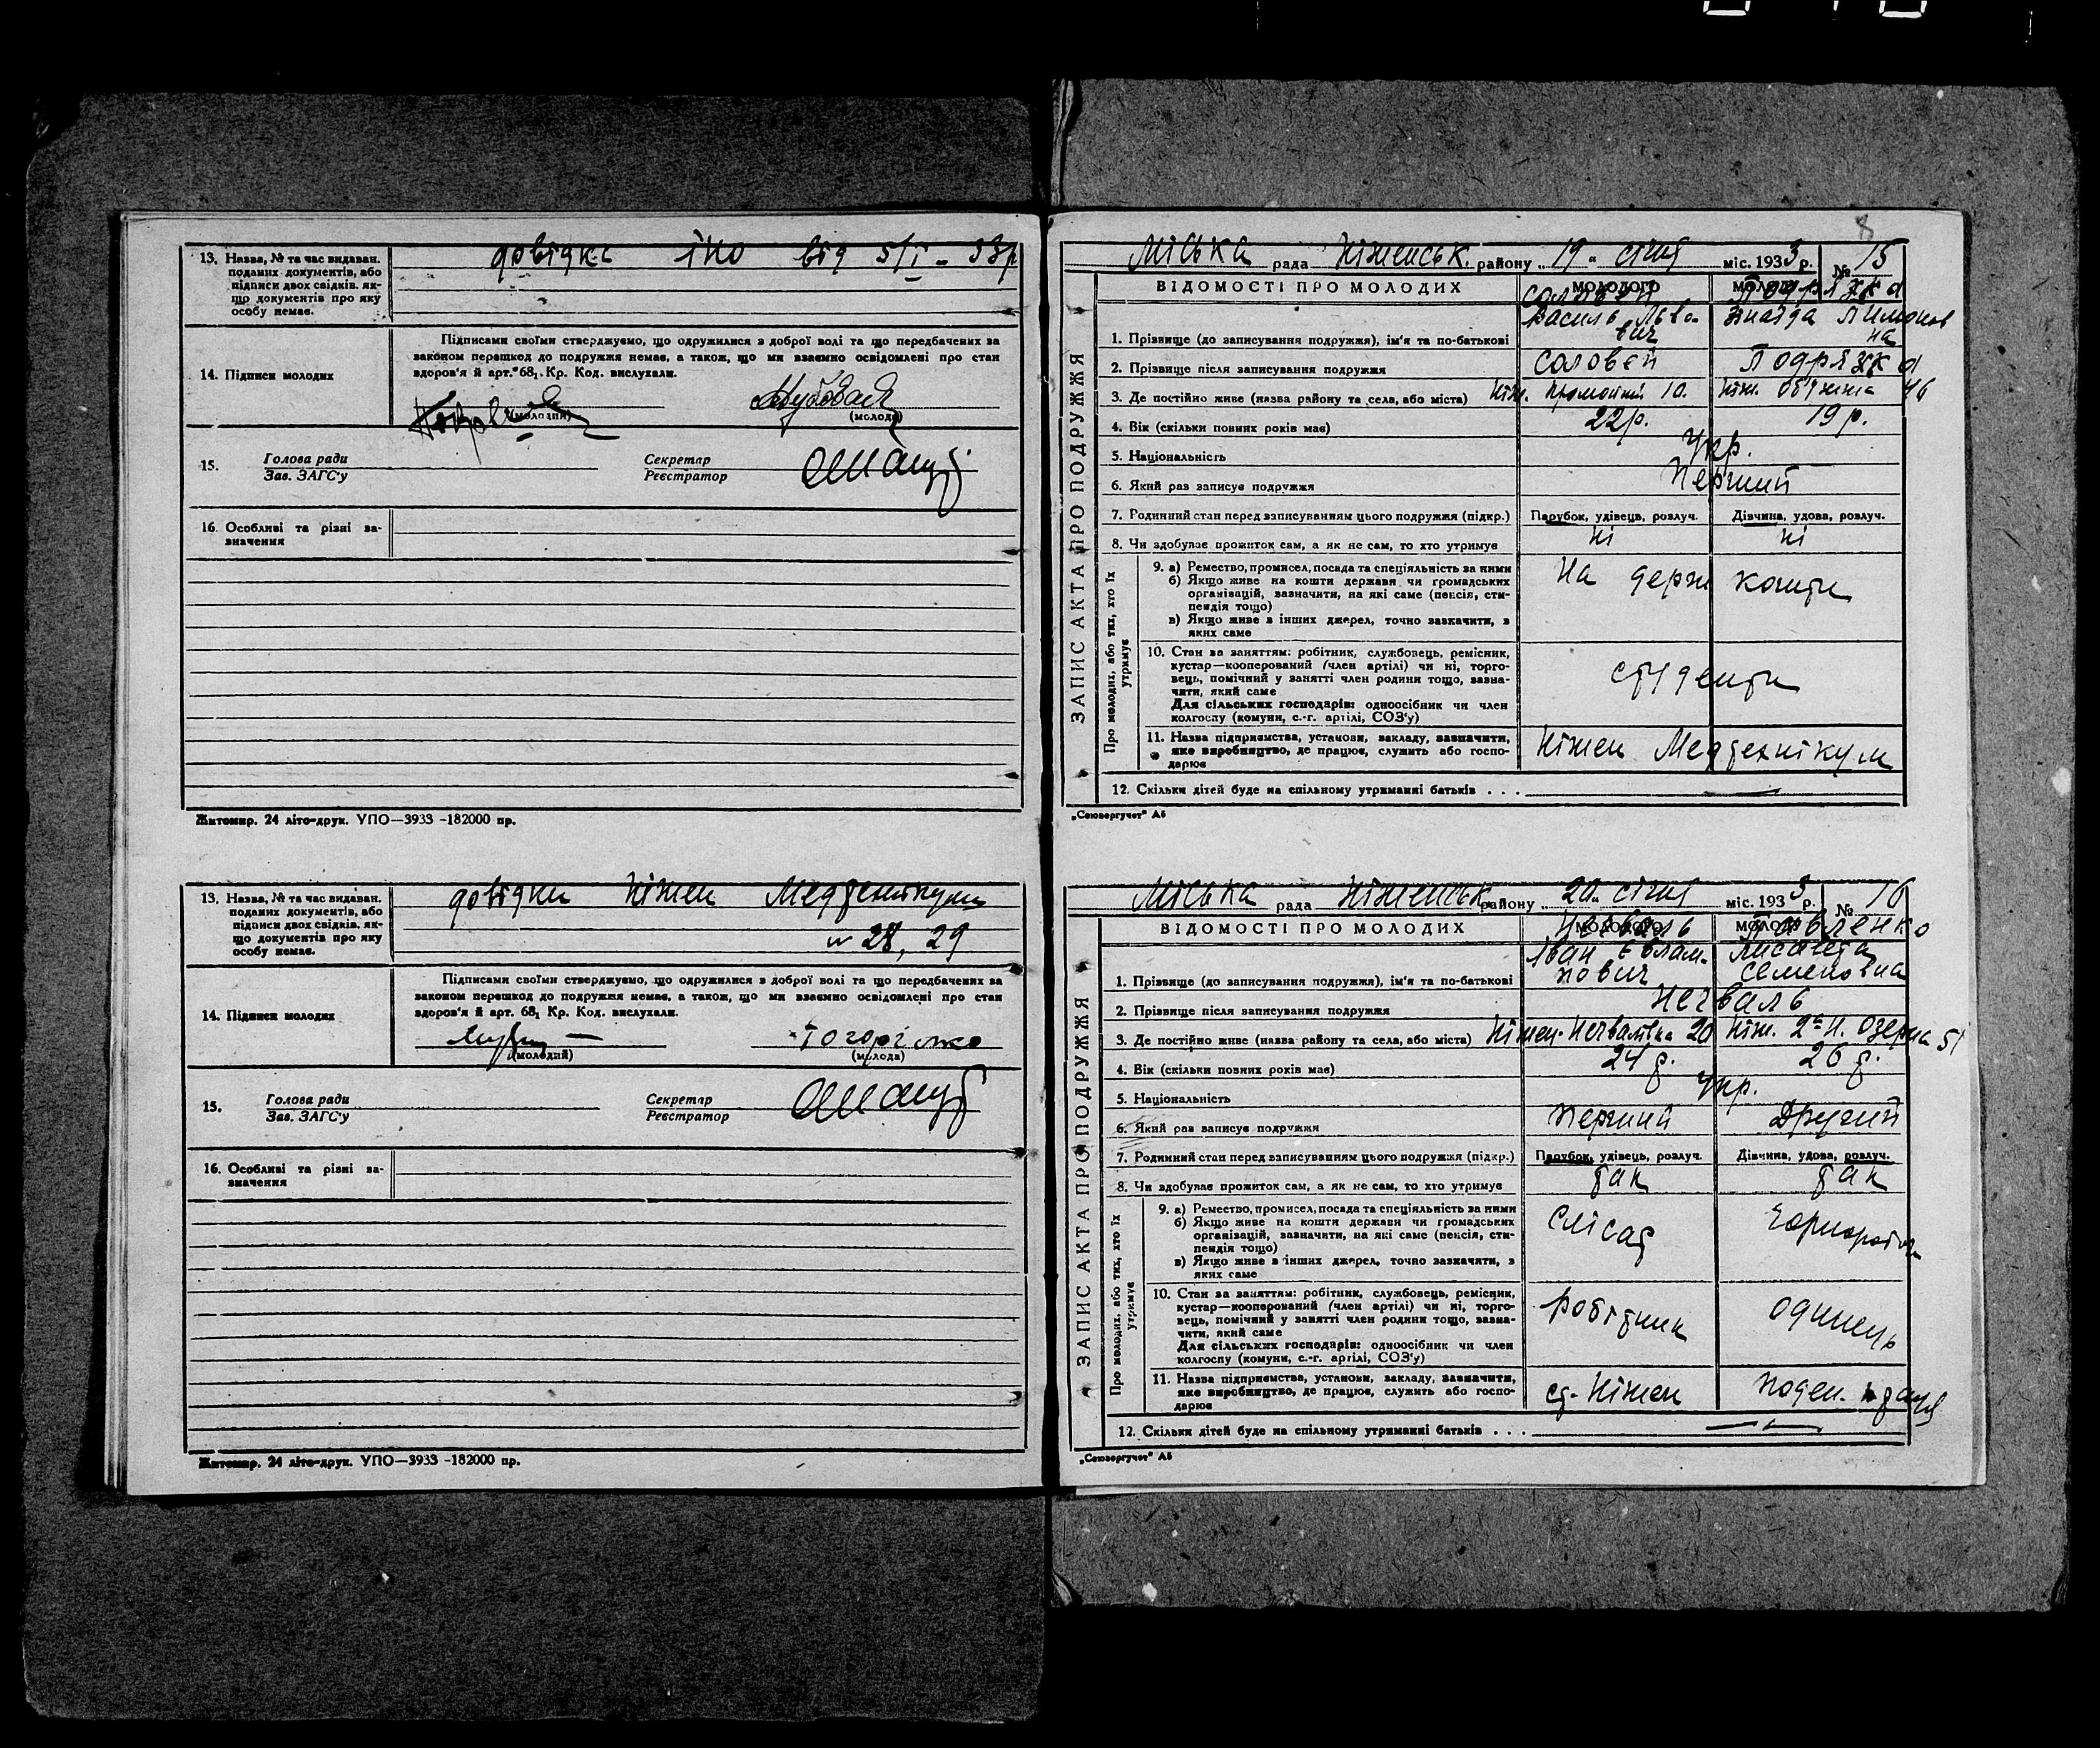 13. Назва, № та час видаван. поданих документів, або підписи двох свідків. якщо документів про яку особу немає.
довідка іно від 5/I - 33р
14. Підписи молодих
Підписами своїми стверджуємо, що одружилися з доброї волі та що передбачених за
законом перешкод до подружжя немає, а також, що ми взаємно освідомлені про стан
здоров'я й арт. 68₁ Кр. Код. вислухали.
(молодий) (молода)
15. Голова ради Секретар
Зав. ЗАГС'у Реєстратор
16. Особливі та різні зазначення
Житомир. 24 літо-друк. УПО—3933 -182000 пр.
13. Назва, № та час видаван. поданих документів, або підписи двох свідків. якщо документів про яку особу немає.
довідки Ніжен Медтехнікум
№ 28, 29
14. Підписи молодих
Підписами своїми стверджуємо, що одружилися з доброї волі та що передбачених за
законом перешкод до подружжя немає, а також, що ми взаємно освідомлені про стан
здоров'я й арт. 68₁ Кр. Код. вислухали.
(молодий) (молода)
15. Голова ради Секретар
Зав. ЗАГС'у Реєстратор
16. Особливі та різні зазначення
Житомир. 24 літо-друк. УПО—3933 -182000 пр.
8
Міська рада Ніженськ. району „19" січня міс. 1933 р. № 15
ЗАПИС АКТА ПРО ПОДРУЖЖЯ
ВІДОМОСТІ ПРО МОЛОДИХ МОЛОДОГО
1. Прізвище (до записування подружжя), ім'я та по-батькові Соловей Василь Львович Подряжка Зінаїда
2. Прізвище після записування подружжя Соловей Подряжка
3. Де постійно живе (назва району та села, або міста) Ніж. 10. Ніж. 46
4. Вік (скільки повних років має) 22р. 19р.
5. Національність Укр.
6. Який раз записує подружжя Перший
7. Родинний стан перед записуванням цього подружжя (підкр.) Парубок, удівець, розлуч. Дівчина, удова, розлуч.
8. Чи здобуває прожиток сам, а як не сам, то хто утримує ні ні
Про молодих, або тих, хто їх утримує
9. а) Ремество, промисел, посада та спеціяльність за ними
б) Якщо живе на кошти держави чи громадських
організацій, зазначити, на які саме (пенсія, стипендія тощо)
в) Якщо живе з інших джерел, точно зазначити, з
яких саме
На держ кошти
10. Стан за заняттям: робітник, службовець, ремісник,
кустар—кооперований (член артілі) чи ні, торговець, помічний у занятті член родини тощо, зазначити, який саме
Для сільських господарів: одноосібник чи член
колгоспу (комуни, с.-г. артілі, СОЗ'у)
студенти
11. Назва підприємства, установи, закладу, зазначити,
яке виробництво, де працює, служить або господарює
Ніжен Медтехнікум
12. Скільки дітей буде на спільному утриманні батьків . . . —
„Союзоргучет" А5
Міська рада Ніженськ району „20" січня міс. 1933 р. № 16
ЗАПИС АКТА ПРО ПОДРУЖЖЯ
ВІДОМОСТІ ПРО МОЛОДИХ МОЛОДОГО
1. Прізвище (до записування подружжя), ім'я та по-батькові Нечваль Іван Євлампович Павленко Лисавета Семеновна
2. Прізвище після записування подружжя Нечваль
3. Де постійно живе (назва району та села, або міста) Ніжен. 20 Ніж. 2а Н. Озерна 51
4. Вік (скільки повних років має) 24 р. 26 р.
5. Національність Укр.
6. Який раз записує подружжя Перший Другий
7. Родинний стан перед записуванням цього подружжя (підкр.) Парубок, удівець, розлуч. Дівчина, удова, розлуч.
8. Чи здобуває прожиток сам, а як не сам, то хто утримує так так
Про молодих, або тих, хто їх утримує
9. а) Ремество, промисел, посада та спеціяльність за ними
б) Якщо живе на кошти держави чи громадських
організацій, зазначити, на які саме (пенсія, стипендія тощо)
в) Якщо живе з інших джерел, точно зазначити, з
яких саме
Слісар
10. Стан за заняттям: робітник, службовець, ремісник,
кустар—кооперований (член артілі) чи ні, торговець, помічний у занятті член родини тощо, зазначити, який саме
Для сільських господарів: одноосібник чи член
колгоспу (комуни, с.-г. артілі, СОЗ'у)
робітник одинець
11. Назва підприємства, установи, закладу, зазначити,
яке виробництво, де працює, служить або господарює
ст. Ніжен поден.
12. Скільки дітей буде на спільному утриманні батьків . . . —
„Союзоргучет" А5